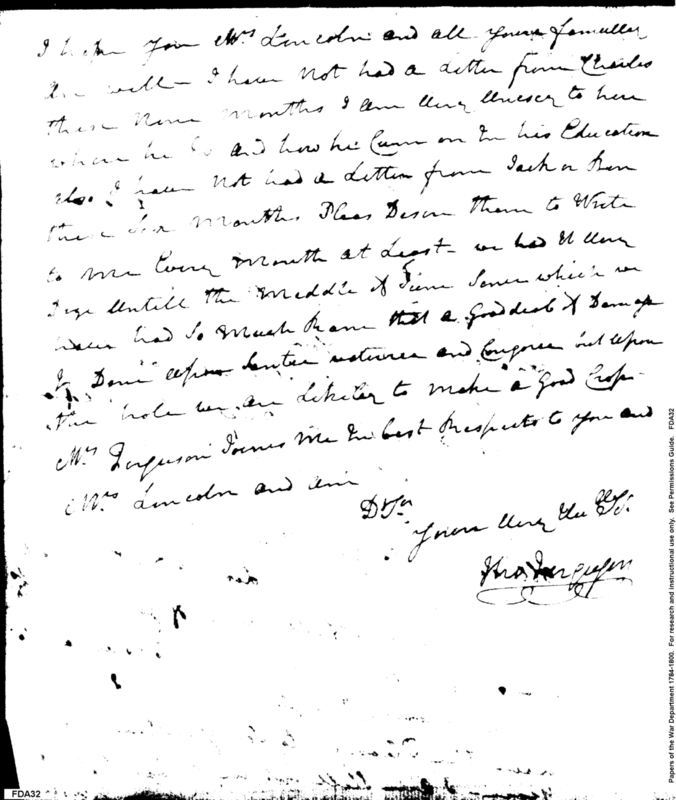 I hope you Mrs Lincoln and all youre famulley
are well – I have Not had a Letter from Charles
these Nine Months I am Very Unesey to here
where he is and how he Cum on In his Education
also I have Not had a Letter from Jack or Ben
these Six Months Pleas Desire them to Write
to me Every Month at Least – we had It Very
Drye Untill the Meddle of June Sence which we
have had So Much Rain that a Good deal of Damage
Is Done Upon Santee and Congree but Upon
the hole we are Likeley to Make a Good Crop
Mrs Ferguson Joines Me In best Respects to you and
Mrs Lincoln and am
Dr Sir
Youre Very
Thos Ferguson
FDA32
Papers of the War Department 1784-1800. For research and instructional use only. See Permissions Guide. FDA32